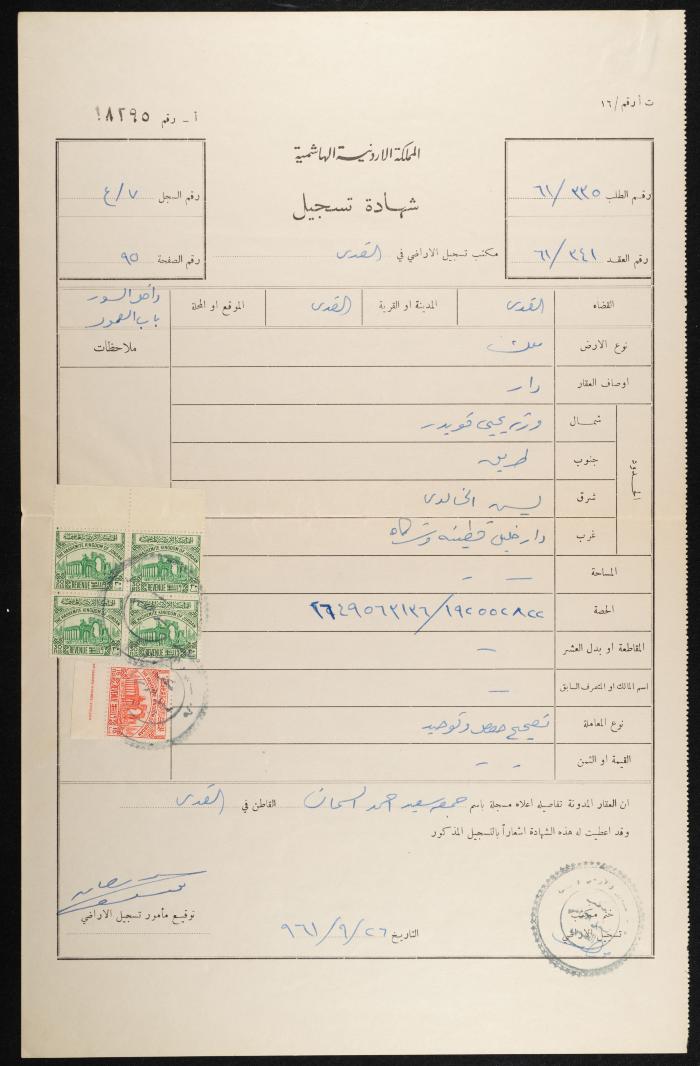 ت أ رقم /١٦
أ - رقم ١٨٢٩٥
المملكة الاردنية الهاشمية
شهادة تسجيل
رقم الطلب ٦١/٣٣٥
رقم العقد ٦١/٣٤١
رقم السجل ٧/ع
رقم الصفحة ٩٥
مكتب تسجيل الاراضي في القدس
القضاء القدس المدينة او القرية القدس الموقع او المحلة داخل السور باب العمود
ملاحظات
نوع الارض ملك
اوصاف العقار دار
الحدود
شمال ورثة يحيى قويدر
جنوب طريق
شرق الخالدي
غرب دار خليل قطينه وشركاه
المساحة —
الحصة ١٩٢٥٥٢٨٢٢/٢٦٤٩٥٦٣١٣٦
المقاطعة او بدل العشر —
اسم المالك او المتصرف السابق —
نوع المعاملة تصحيح حصص وتوحيد
القيمة او الثمن - -
ان العقار المدونة تفاصيله اعلاه مسجلة باسم جمعه سعيد احمد السمان القاطن في القدس
وقد اعطيت له هذه الشهادة اشعاراً بالتسجيل المذكور
ختم مكتب
تسجيل الاراضي
التاريخ ٩٦١/٩/٢٦
توقيع مأمور تسجيل الاراضي
THE HASHEMITE KINGDOM OF JORDAN
REVENUE
THE HASHEMITE KINGDOM OF JORDAN
REVENUE
THE HASHEMITE KINGDOM OF JORDAN
REVENUE
THE HASHEMITE KINGDOM OF JORDAN
REVENUE